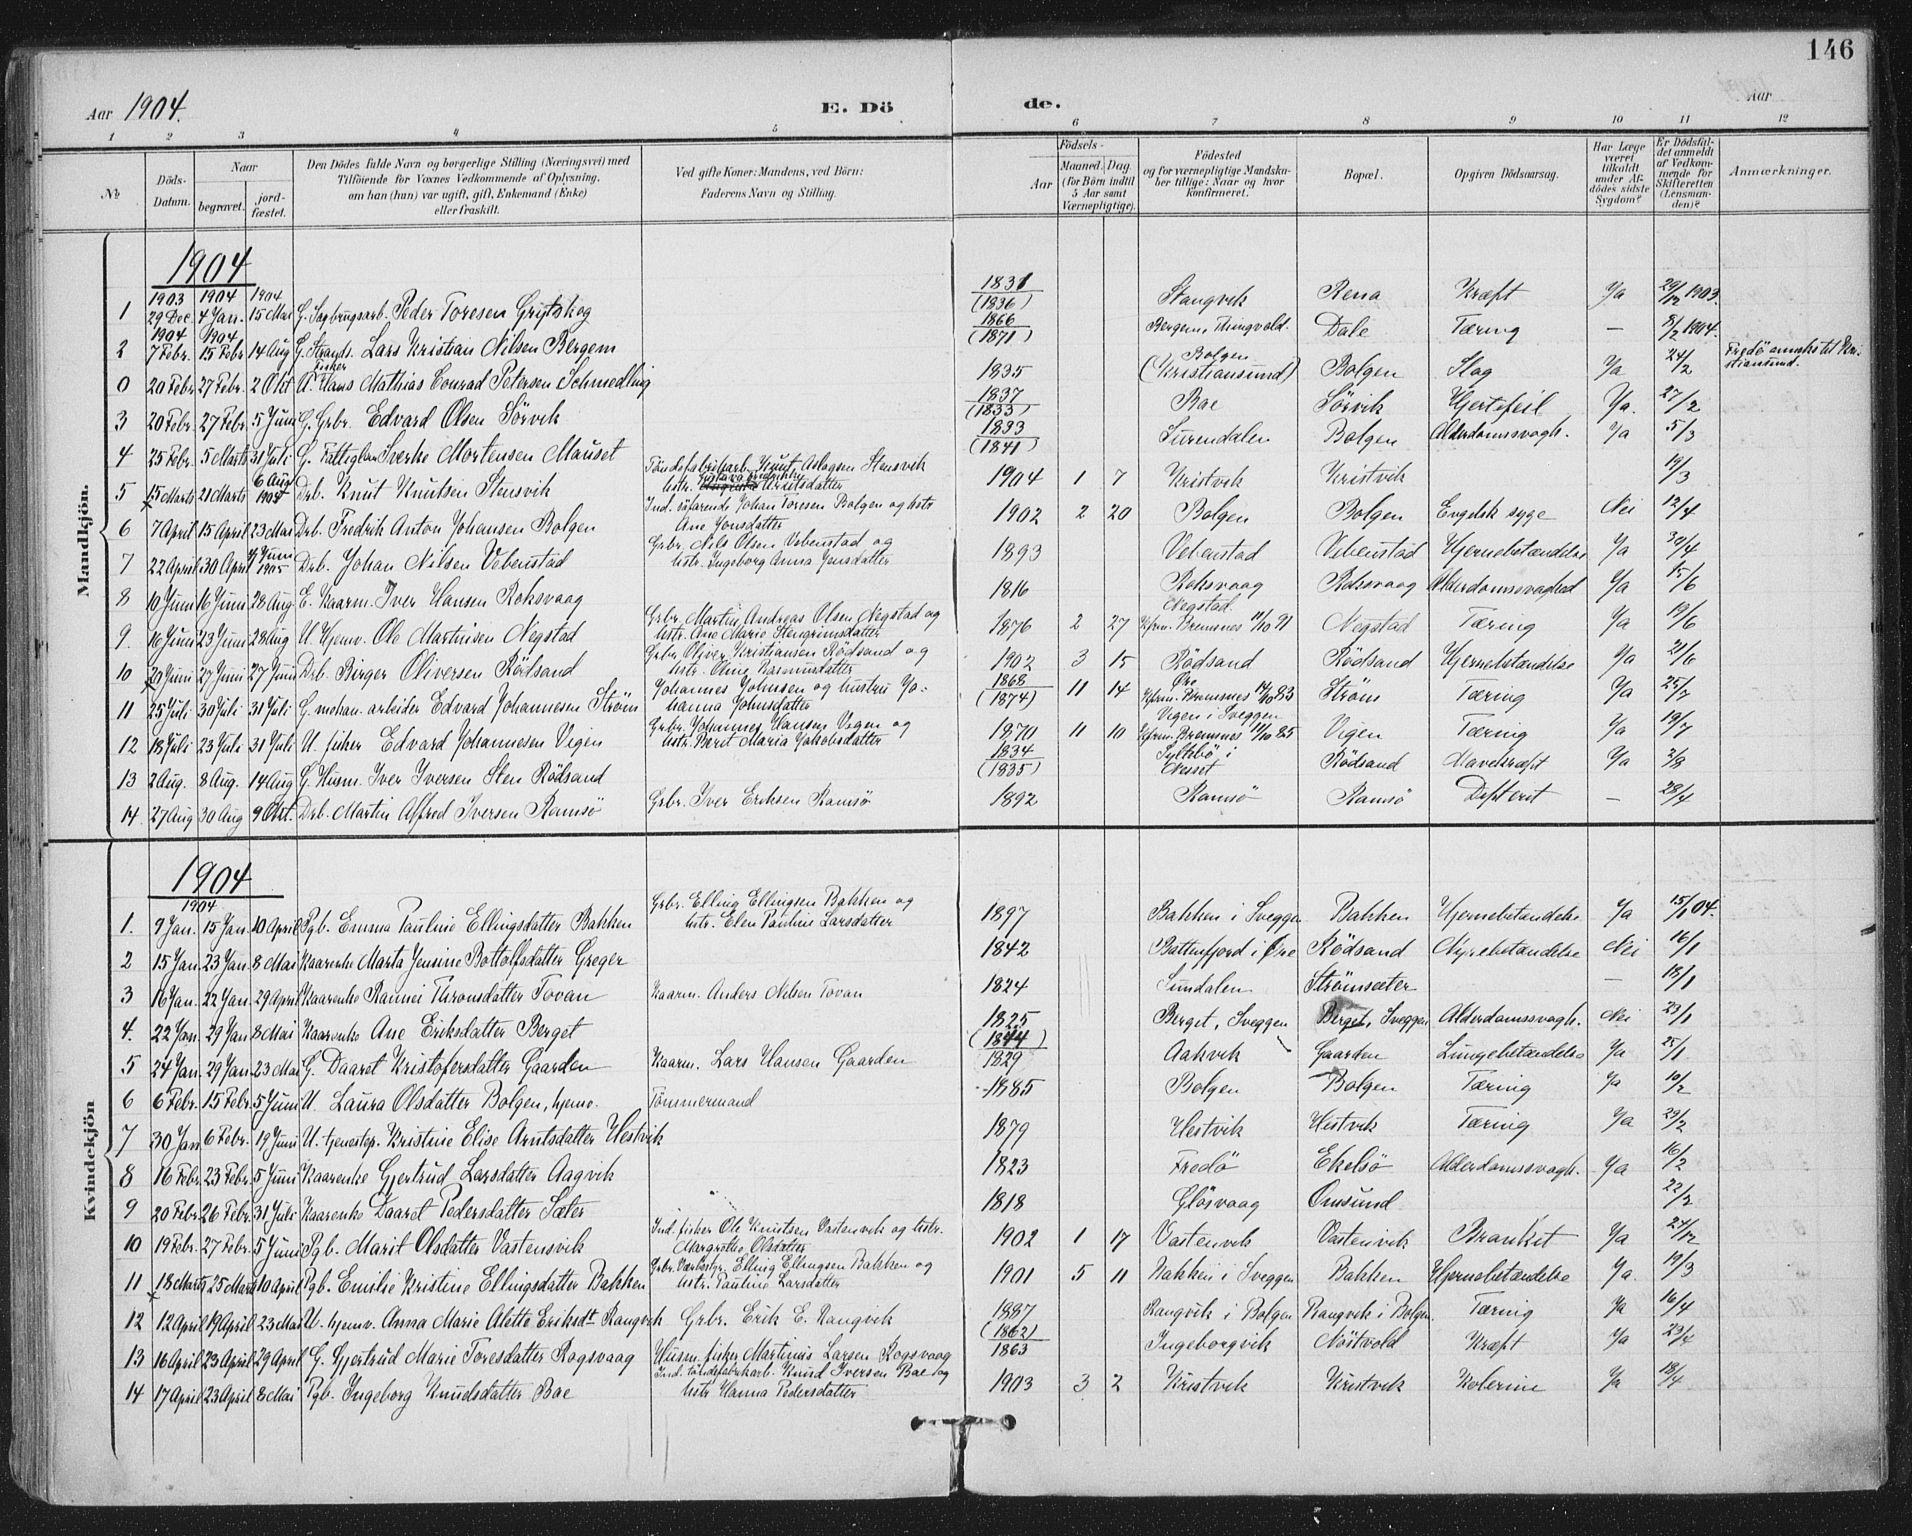 146
Aar 1904. E. Dö de. Aar
1 2 3 4 5 6 7 8 9 10 11 12
№ Döds-Datum. Naar begravet. jordfæstet. Den Dödes fulde Navn og borgerlige Stilling (Næringsvei) med Tilföiende for Voxnes Vedkommende af Oplysning, om han (hun) var ugift, gift, Enkemand (Enke) eller fraskilt. Ved gifte Koner: Mandens, ved Börn: Faderens Navn og Stilling. Födsels- Aar Maaned. Dag (for Börn indtil 5 Aar samt Værnepligtige). Födested og for værnepligtige Mandskaber tillige: Naar og hvor konfirmeret. Bopæl. Opgiven Dödsaarsag. Har Læge været tilkaldt under Afdödes sidste Sygdom? Er Dödsfaldet anmeldt af Vedkommende for Skifteretten (Lensmanden)? Anmærkninger.
Mandkjön.
1904
1903 1904 1904
1 29 Dec. 4 Jan. 15 Mai G. Sagbrugsarb. Peder Toresen Grytskog 1831 (1836) Stangvik Rena Kræft Ja 29/12 1903.
1904 1904
2 7 Febr. 15 Febr 14 Aug G. Strands. Lars Kristian Nilsen Bergem 1866 (1871) Bergem, Thingvold. Dale Tæring — 8/2 1904.
0 20 Febr 27 Febr. 2 Okt Fisker Hans Mathias Conrad Petersen Schmedling 1835 Bolgen (Kristiansund) Bolgen Slag Ja 24/2 Fredö anmeldt til Kristiansund.
3 20 Febr. 27 Febr 5 Juni G. Grbr. Edvard Olsen Sörvik 1837 (1833) Bae Sörvik Hjertefeil Ja. 27/2
4 25 Febr. 5 Marts 31 Juli G. Fattiglem Sverke Mortensen Mauset 1833 (1841) Surendalen Bolgen Alderdomssvagh. Ja 5/3
5 15 Marts 21 Marts 6 Aug 1905 Drb. Knut Knutsen Stensvik Töndefabrikarb. Knut Aslagsen Stensvik hstr. Knutsdatter 1904 1 7 Kristvik Kristvik 19/3
6 7 April 15 April 23 Mai Drb. Fredrik Anton Johansen Bolgen Ind. söfarende Johan Toresen Bolgen og hstr Ane Jonsdatter 1902 2 20 Bolgen Bolgen Engelsk syge Nei 12/4
7 22 April 30 April Juni 1905 Drb. Johan Nilsen Vebenstad Grbr. Nils Olsen Vebenstad og hstr. Ingeborg Anna Jensdatter 1893 Vebenstad Vebenstad Hjernebetændelse Ja 30/4
8 10 Juni 16 Juni 28 Aug. E. Kaarm. Iver Hansen Roksvaag 1816 Roksvaag Roksvaag Alderdomssvaghed Ja 15/6
9. 16 Juni 23 Juni 28 Aug U. Hjemv. Ole Martinsen Negstad Grbr. Martin Andreas Olsen Negstad og hstr. Ane Marie Stengrimsdatter 1876 2 27 Negstad. Kfrm. Bremsnes 11/10 91 Negstad Tæring Ja 19/6
10 20 Juni 27 Juni 27 Juni Drb. Birger Oliversen Rödsand Grbr. Oliver Kristiansen Rödsand og hstr. Oline Rasmusdatter 1902 3 15 Rödsand Rödsand Hjernebetændelse Ja 21/6
11 25 Juli 30 Juli 31 Juli G. mekan. arbeider Edvard Johannesen Ström Johannes Johnsen og hustru Johanna Johnsdatter 1868 (1874) 11 14 Øre Kfrm. Bremsnes 14/10 83 Ström Tæring Ja 25/7
12 18 Juli 23 Juli 31 Juli U. fisker Edvard Johannesen Vigen Grbr. Johannes Hansen Vigen og hstr. Berit Maria Jakobsdatter 1870 11 10 Vigen i Sveggen Kfrm. Bremsnes 11/10 85 Vigen Tæring Ja 19/7
13 2 Aug. 8 Aug. 14 Aug G. Husm. Iver Iversen Sten Rödsand 1834 (1835) Syltebö i Nesset Rödsand Mavekræft Ja 3/8
14. 27 Aug 30 Aug 9 Okt. Drb. Martin Alfred Iversen Ramsö Grbr. Iver Eriksen Ramsö 1892 Ramsö Ramsö Difterit — 28/4
Kvindekjön
1904
1904
1. 9 Jan. 15 Jan. 10 April Pgb. Emma Pauline Ellingsdatter Bakken Grbr. Elling Ellingsen Bakken og hstr. Elen Pauline Larsdatter 1897 Bakken i Sveggen Bakken Hjernebetændelse Ja 15/1 04.
2 15 Jan. 23 Jan. 8 Mai Kaarenke Marta Jensine Bottolfsdatter Greger 1842 Battenfjord i Øre Rödsand Nyrebetændelse Nei 16/1
3 16 Jan. 22 Jan. 29 April Kaarenke Rannei Thronsdatter Tovan Kaarm. Anders Nilsen Tovan 1824 Sundalen Strömsæter — 18/1
4. 22 Jan. 29 Jan 8 Mai Kaarenke Ane Eriksdatter Berget 1825 Berget, Sveggen Berget, Sveggen Alderdomssvagh. Nei 23/1
5 24 Jan. 29 Jan. 23 Mai G. Daaret Kristofersdatter Gaarden Kaarm. Lars Hansen Gaarden (1844) 1829 Aakvik Gaarden Lungebetændelse Ja 25/1
6 6 Febr. 15 Febr. 5 Juni U. Laura Olsdatter Bolgen, hjemv. Tömmermand 1885 Bolgen Bolgen Tæring Ja 10/2
7 30 Jan 6 Febr. 19 Juni U. tjenestep. Kristine Elise Arntsdatter Hestvik 1879 Hestvik Hestvik Tæring Ja 29/2
8 16 Febr. 23 Febr. 5 Juni Kaarenke Gjertrud Larsdatter Aagvik 1823 Fredö Ekelsö Alderdomssvagh. Ja 16/2
9 20 Febr. 26 Febr. 31 Juli Kaarenke Daaret Pedersdatter Sæter 1818 Glösvaag Omsund 22/2
10 19 Febr. 27 Febr. 5 Juni Pgb. Marit Olsdatter Vastensvik Ind. fisker Ole Knutsen Vastenvik og hstr. Margrethe Olsdatter 1902 1 17 Vastenvik Vastenvik Bronkit Ja 27/12
11 18 Marts 25 Marts 10 April Pgb. Emilie Kristine Ellingsdatter Bakken Grbr. Elling Ellingsen Bakken og hstr. Pauline Larsdatter 1901 5 11 Bakken i Sveggen Bakken Hjernebetændelse Ja. 19/3
12 12 April 19 April 23 Mai U. hjemv. Anna Marie Alette Eriksdt Rangvik Grbr. Erik E. Rangvik 1887 Rangvik i Bolgen Rangvik i Bolgen Tæring Ja 16/4
13 16 April 23 April 29 April G. Gjertrud Marie Toresdatter Rogsvaag Husm. fisker Martinus Larsen Rogsvaag (1862) 1863 Ingeborgvik Nöstvold Kræft Ja 23/4
14 17 April 23 April 8 Mai Pgb. Ingeborg Knudsdatter Bae Ind. töndefabrikarb. Knud Iversen Bae og hstr Hanna Pedersdatter 1903 3 2 Kristvik Kristvik Kolerine Ja 18/4